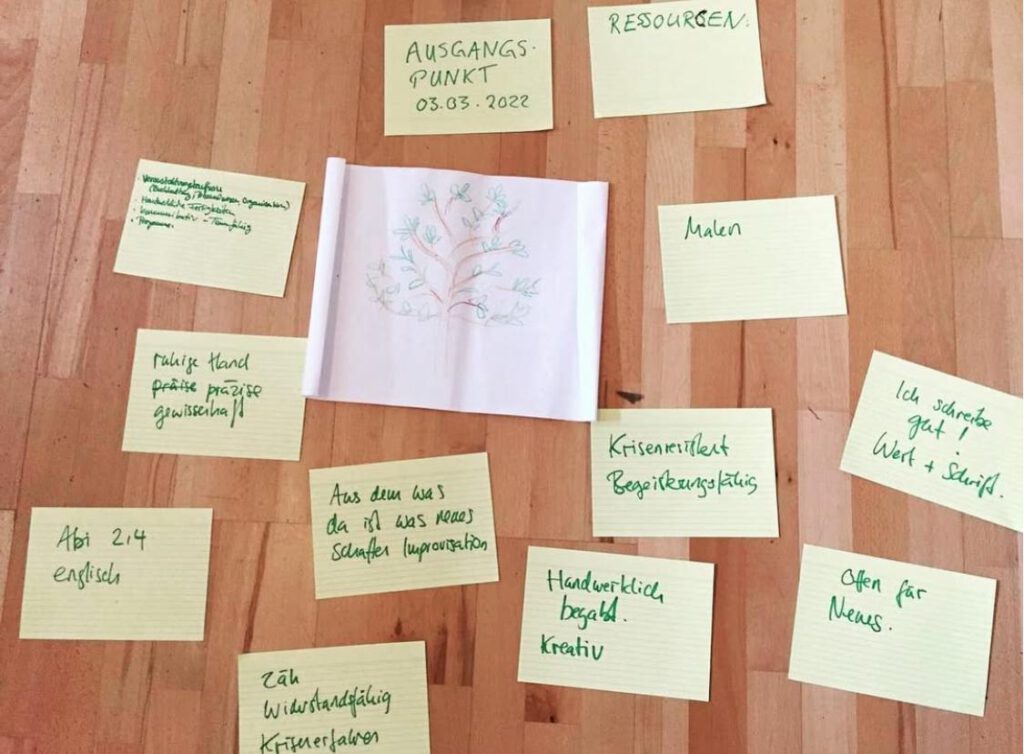 AUSGANGS-
PUNKT
03.03.2022
RESSOURCEN:
· Veranstaltungskauffrau
(Buchhaltung, Organisation)
· Handwerkliche Fertigkeiten
· Kommunikativ - Teamfähig
Malen
ruhige Hand
präise präzise
gewissenhaft
Ich schreibe
gut!
Wort + Schrift.
Krisenresistent
Begeisterungsfähig
Aus dem was
da ist was neues
schaffen Improvisation
Abi 2,4
englisch
Handwerklich
begabt.
Kreativ
Offen für
Neues.
Zäh
Widerstandsfähig
Krisenerfahren